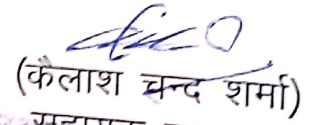 (कैलाश चन्द शर्मा)